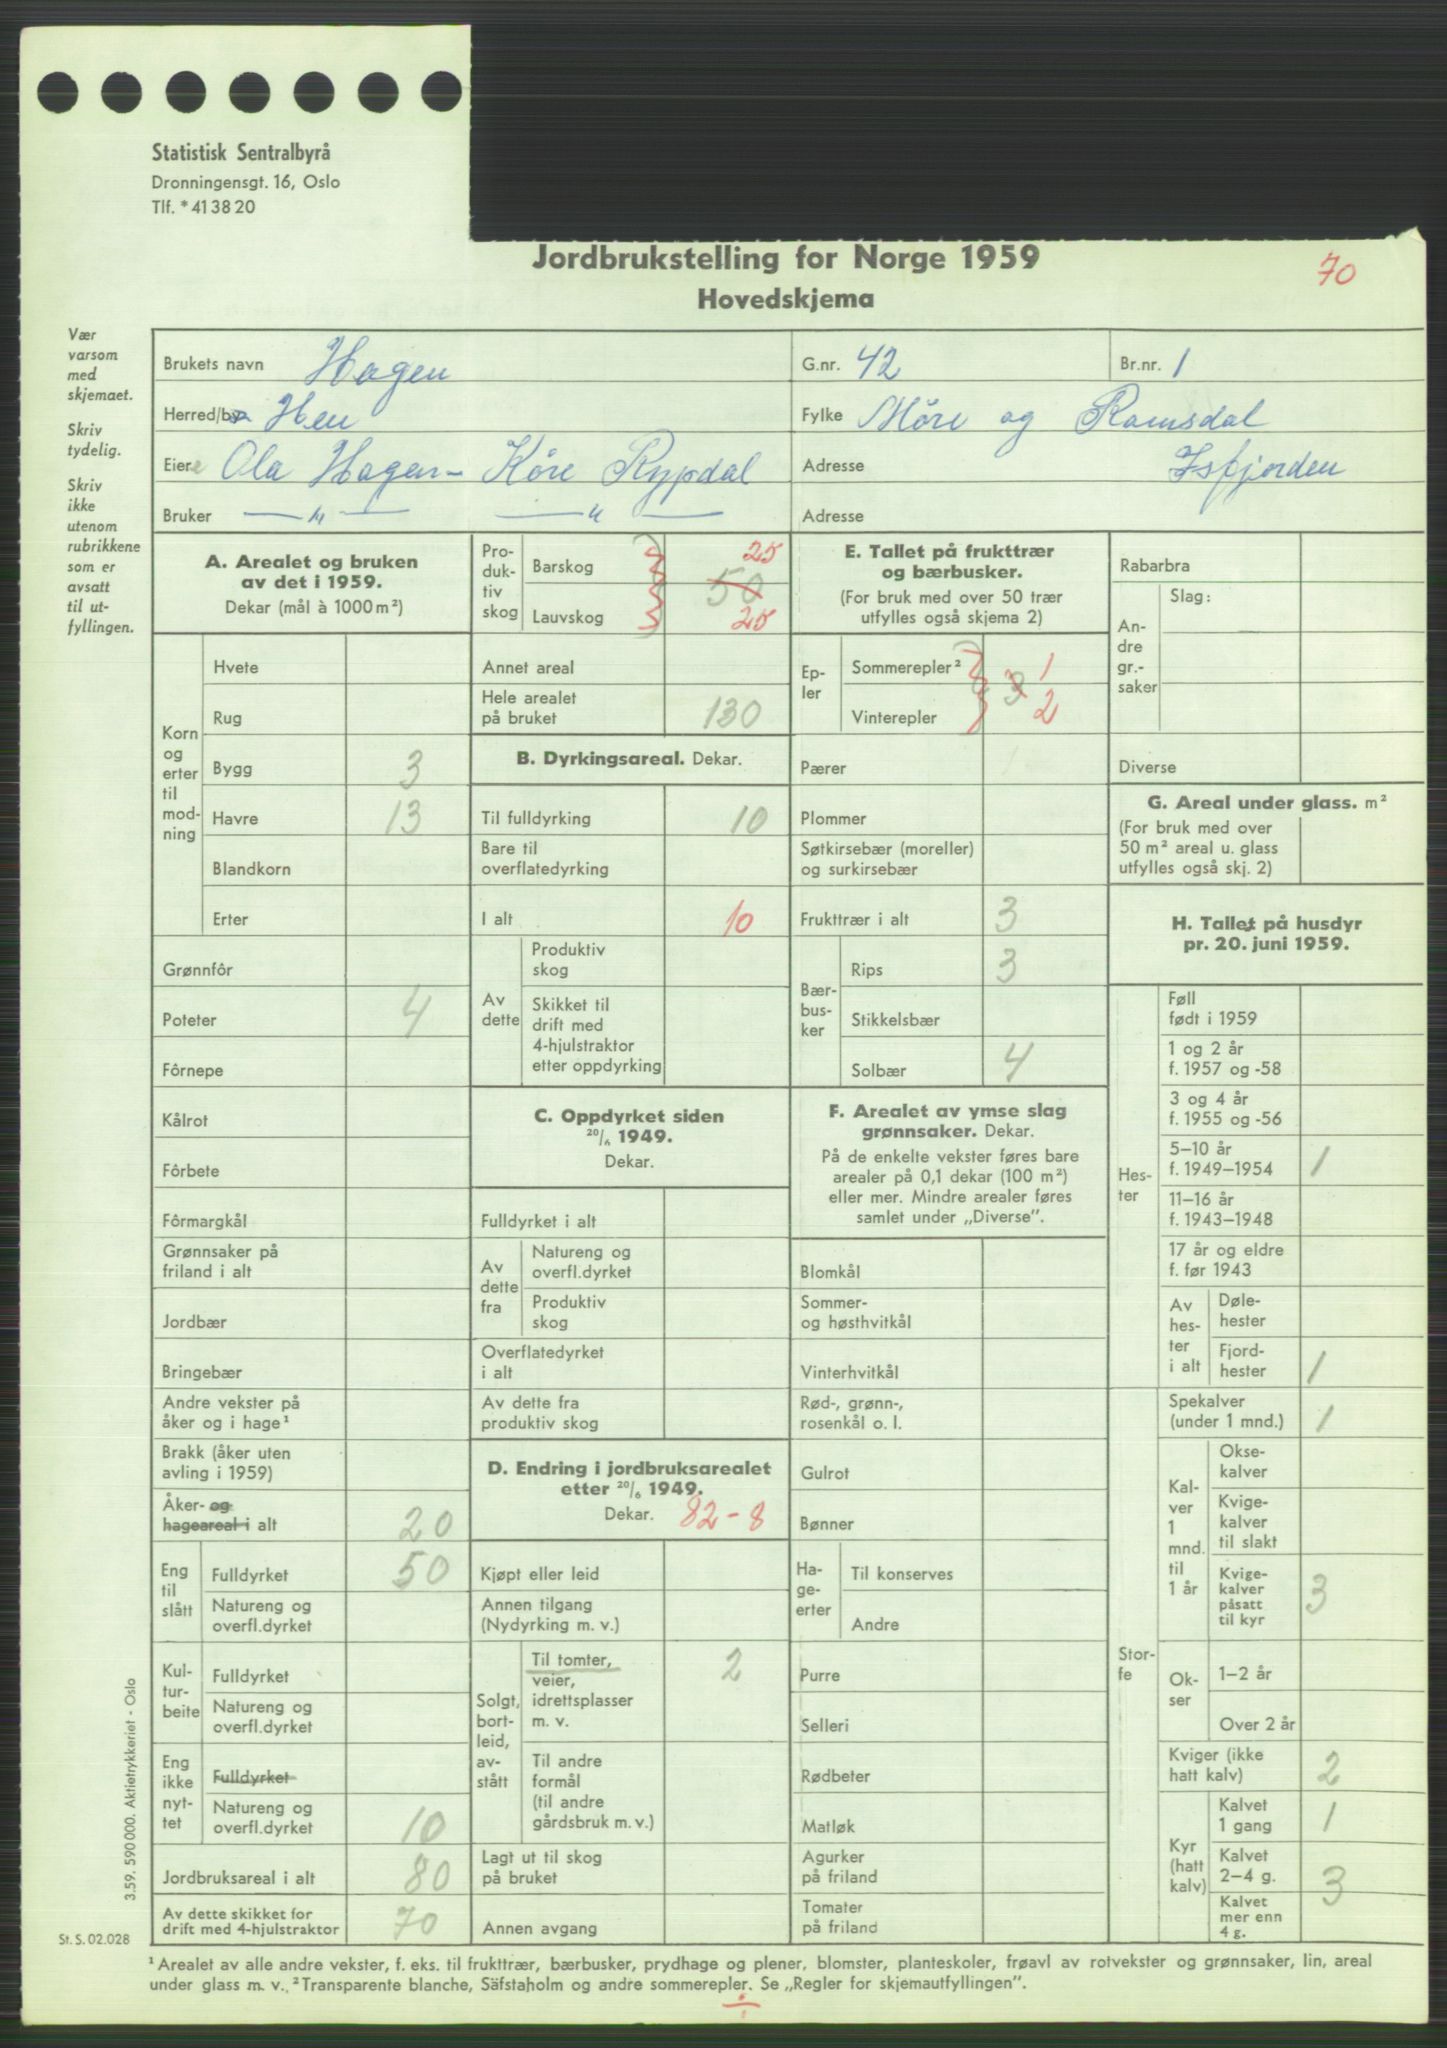 Statistisk Sentralbyrå
Dronningensgt. 16, Oslo
Tlf. * 41 38 20
Jordbrukstelling for Norge 1959
70
Hovedskjema
Vær
varsom
med
skjemaet.
Skriv
tydelig.
Skriv
ikke
utenom
rubrikkene
som er
avsatt
til ut-
fyllingen.
Brukets navn Hagen
G.nr. 42
Br.nr. 1
Herred/by Hen
Fylke Møre og Romsdal
Eiere Ola Hagen - Kåre Rypdal
Adresse Isfjorden
Bruker — " — — " —
Adresse
A. Arealet og bruken
av det i 1959.
Dekar (mål à 1000 m²)
Korn
og
erter
til
mod-
ning
Hvete
Rug
Bygg 3
Havre 13
Blandkorn
Erter
Grønnfôr
Poteter 4
Fôrnepe
Kålrot
Fôrbete
Fôrmargkål
Grønnsaker på
friland i alt
Jordbær
Bringebær
Andre vekster på
åker og i hage¹
Brakk (åker uten
avling i 1959)
Åker- og
hageareal i alt 20
Eng
til
slått
Fulldyrket 50
Natureng og
overfl.dyrket
Kul-
tur-
beite
Fulldyrket
Natureng og
overfl.dyrket
Eng
ikke
nyt-
tet
Fulldyrket
Natureng og
overfl.dyrket 10
Jordbruksareal i alt 80
Av dette skikket for
drift med 4-hjulstraktor 70
Pro-
duk-
tiv
skog
Barskog 25
50
Lauvskog 25
Annet areal
Hele arealet
på bruket 130
B. Dyrkingsareal. Dekar.
Til fulldyrking 10
Bare til
overflatedyrking
I alt 10
Av
dette
Produktiv
skog
Skikket til
drift med
4-hjulstraktor
etter oppdyrking
C. Oppdyrket siden
20/6 1949.
Dekar.
Fulldyrket i alt
Av
dette
fra
Natureng og
overfl.dyrket
Produktiv
skog
Overflatedyrket
i alt
Av dette fra
produktiv skog
D. Endring i jordbruksarealet
etter 20/6 1949.
Dekar. 82-8
Kjøpt eller leid
Annen tilgang
(Nydyrking m. v.)
Solgt,
bort-
leid,
av-
stått
Til tomter,
veier,
idrettsplasser
m. v. 2
Til andre
formål
(til andre
gårdsbruk m. v.)
Lagt ut til skog
på bruket
Annen avgang
E. Tallet på frukttrær
og bærbusker.
(For bruk med over 50 trær
utfylles også skjema 2)
Ep-
ler
Sommerepler² 1
3
Vinterepler 2
Pærer
Plommer
Søtkirsebær (moreller)
og surkirsebær
Frukttrær i alt 3
Bær-
bus-
ker
Rips 3
Stikkelsbær
Solbær 4
F. Arealet av ymse slag
grønnsaker. Dekar.
På de enkelte vekster føres bare
arealer på 0,1 dekar (100 m²)
eller mer. Mindre arealer føres
samlet under „Diverse”.
Blomkål
Sommer-
og høsthvitkål
Vinterhvitkål
Rød-, grønn-,
rosenkål o. l.
Gulrot
Bønner
Ha-
ge-
erter
Til konserves
Andre
Purre
Selleri
Rødbeter
Matløk
Agurker
på friland
Tomater
på friland
Rabarbra
An-
dre
gr.-
saker
Slag:
Diverse
G. Areal under glass. m²
(For bruk med over
50 m² areal u. glass
utfylles også skj. 2)
H. Tallet på husdyr
pr. 20. juni 1959.
Hes-
ter
Føll
født i 1959
1 og 2 år
f. 1957 og -58
3 og 4 år
f. 1955 og -56
5–10 år
f. 1949–1954 1
11–16 år
f. 1943–1948
17 år og eldre
f. før 1943
Av
hes-
ter
i alt
Døle-
hester
Fjord-
hester 1
Stor-
fe
Spekalver
(under 1 mnd.) 1
Kal-
ver
1
mnd.
til
1 år
Okse-
kalver
Kvige-
kalver
til slakt
Kvige-
kalver
påsatt
til kyr 3
Ok-
ser
1–2 år
Over 2 år
Kviger (ikke
hatt kalv) 2
Kyr
(hatt
kalv)
Kalvet
1 gang 1
Kalvet
2–4 g. 3
Kalvet
mer enn
4 g.
3.59. 590 000. Aktietrykkeriet - Oslo
St. S. 02.028
¹ Arealet av alle andre vekster, f. eks. til frukttrær, bærbusker, prydhage og plener, blomster, planteskoler, frøavl av rotvekster og grønnsaker, lin, areal
under glass m. v. ² Transparente blanche, Säfstaholm og andre sommerepler. Se „Regler for skjemautfyllingen”.